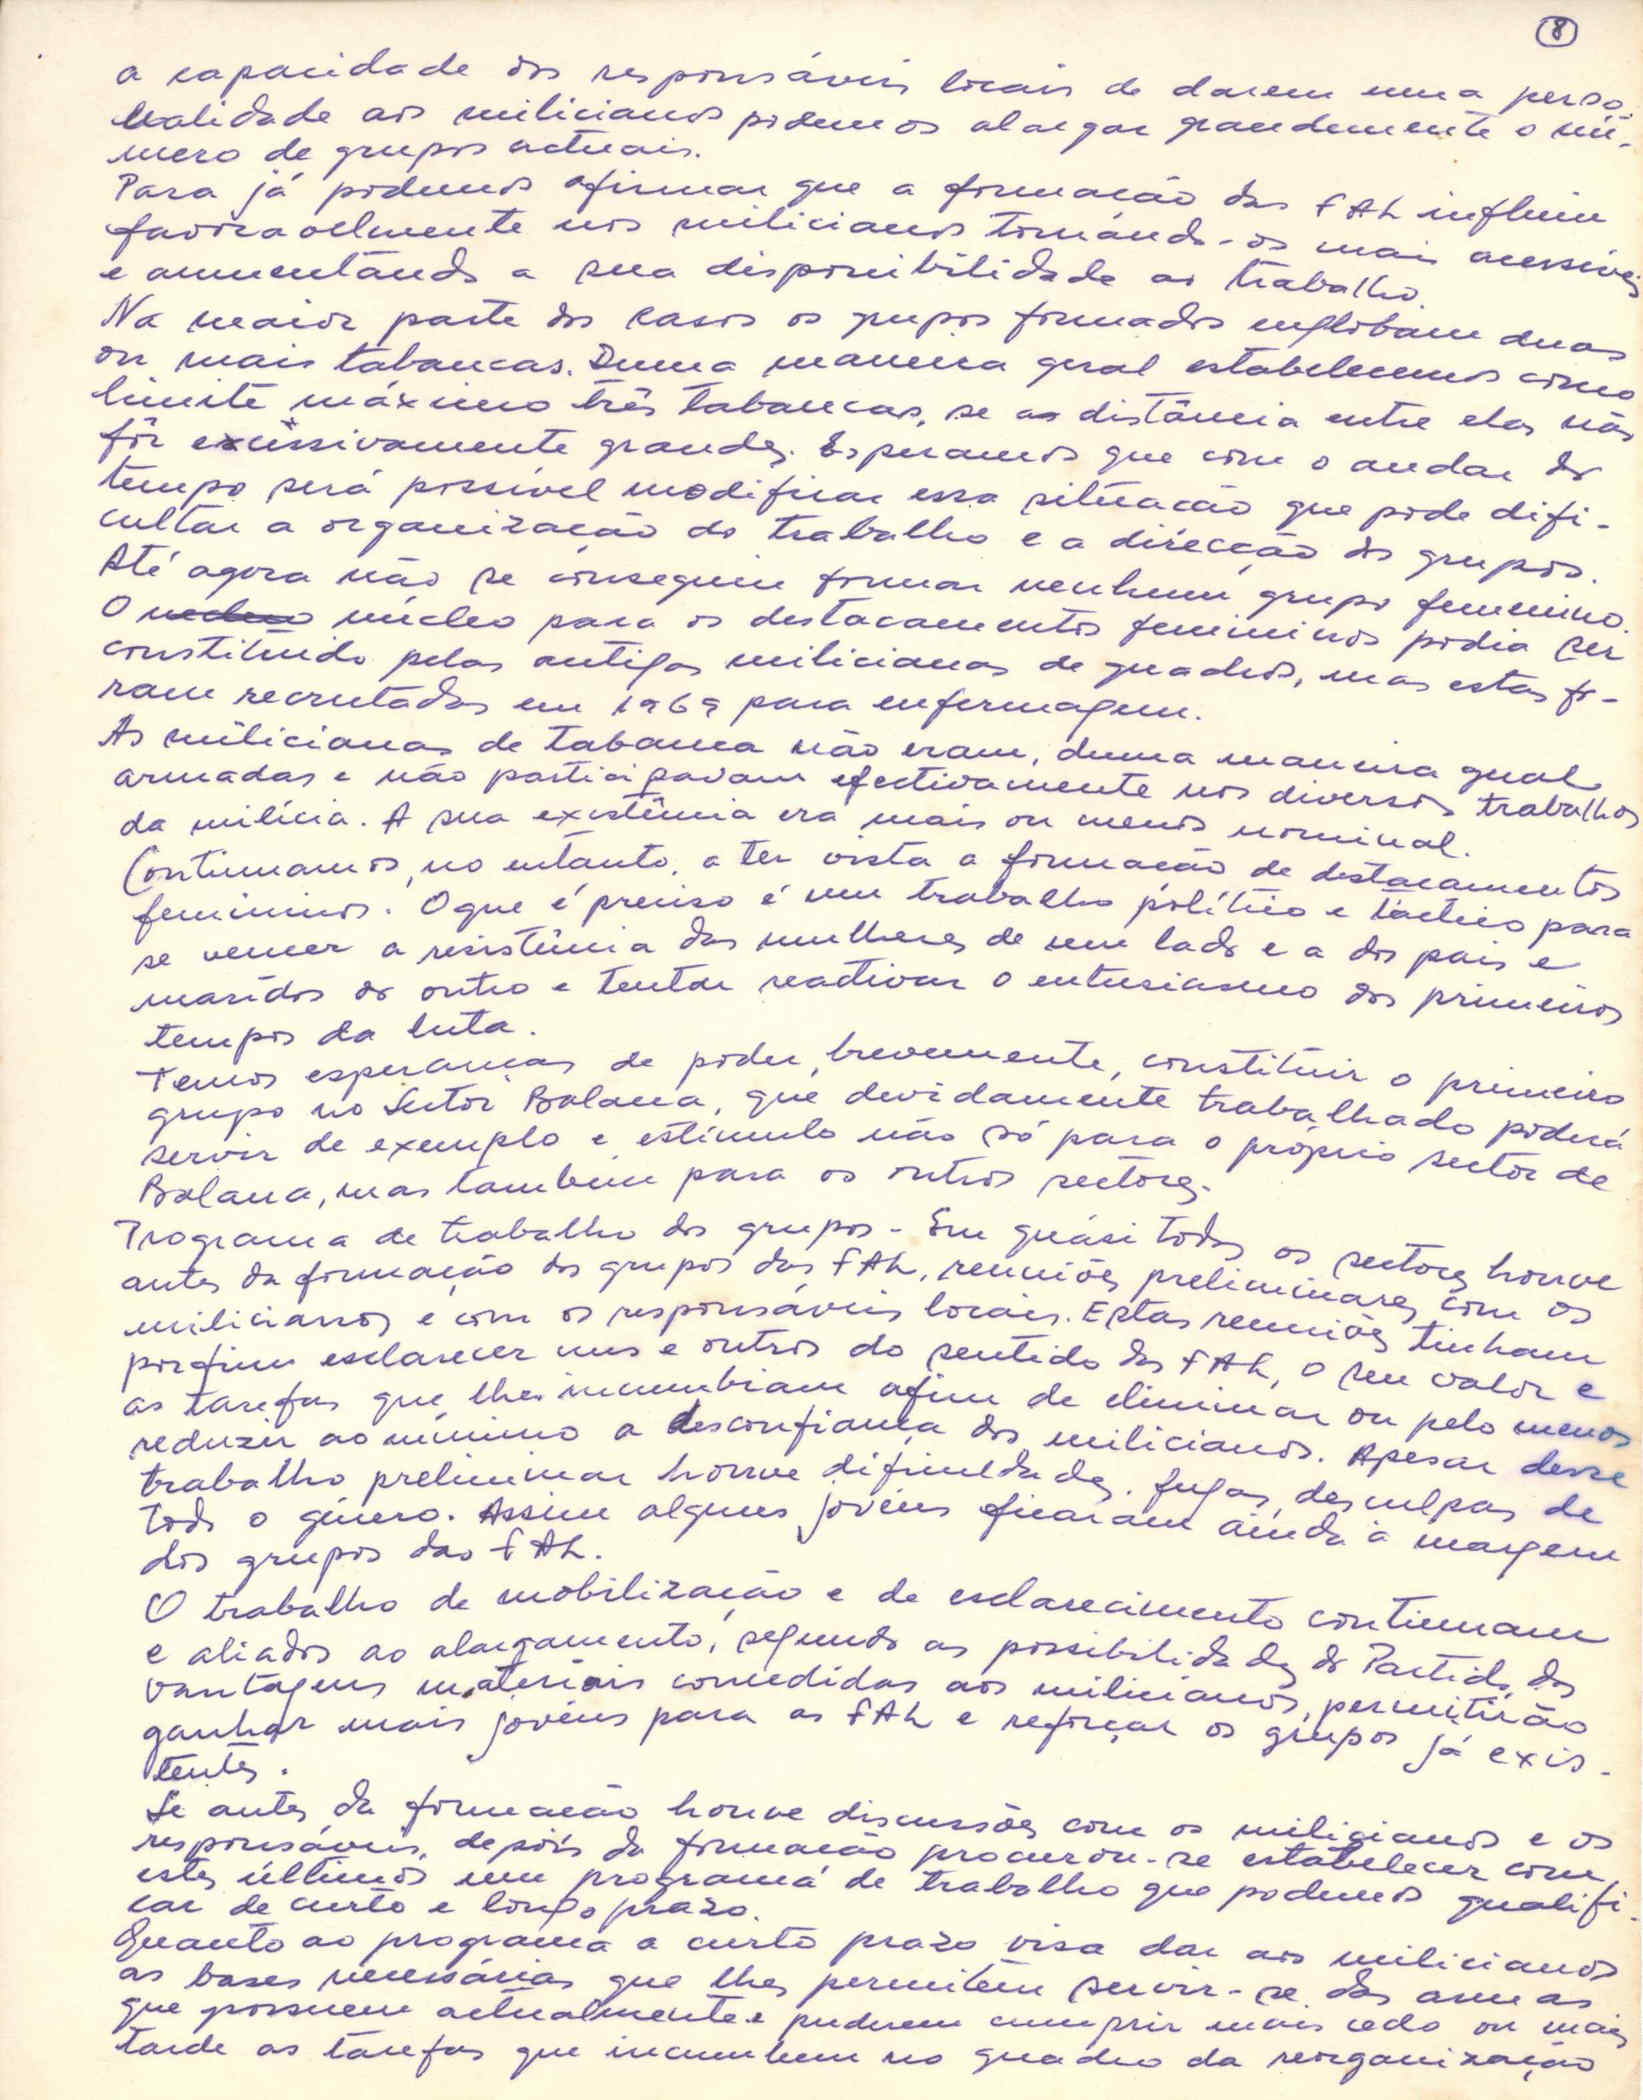 8
a capacidade dos responsáveis locais de darem uma perso-
nalidade aos milicianos podemos alargar grandemente o nú-
mero de grupos actuais.
Para já podemos afirmar que a formação das FAL influiu
favoravelmente nos milicianos tornándo-os mais acessíveis
e aumentando a sua disponibilidade ao trabalho.
Na maior parte dos casos os grupos formados englobam duas
ou mais tabancas. Duma maneira geral estabelecemos como
limite máximo três tabancas, se as distância entre elas não
fôr excessivamente grandes. Esperamos que com o andar do
tempo será possível modificar essa situação que pode difi-
cultar a organização do trabalho e a direcção dos grupos.
Até agora não se conseguiu formar nenhum grupo feminino.
O nucleo núcleo para os destacamentos femininos podia ser
constituido pelas antigas milicianas de quadros, mas estas fo-
ram recrutadas em 1969 para enfermagem.
As milicianas de tabanca não eram, duma maneira geral,
armadas e não participavam efectivamente nos diversos trabalhos
da milícia. A sua existência era mais ou menos nominal.
Continuamos, no entanto, a ter vista a formação de destacamentos
femininos. O que é preciso é um trabalho político e táctico para
se vencer a resistência das mulheres de um lado e a dos pais e
maridos do outro e tentar reactivar o entusiasmo dos primeiros
tempos da luta.
Temos esperanças de poder, brevemente, constituir o primeiro
grupo no Sector Balana, que devidamente trabalhado poderá
servir de exemplo e estímulo não só para o próprio sector de
Balana, mas também para os outros sectores.
Programa de trabalho dos grupos - Em quási todos os sectores houve
antes da formação dos grupos das FAL, reuniões preliminares com os
milicianos e com os responsáveis locais. Estas reuniões tinham
por fim esclarecer uns e outros do sentido das FAL, o seu valor e
as tarefas que lhes incumbiam afim de eliminar ou pelo menos
reduzir ao mínimo a desconfiança dos milicianos. Apesar desse
trabalho preliminar houve dificuldades, fugas, desculpas de
todo o género. Assim alguns jovens ficaram ainda à margem
dos grupos das FAL.
O trabalho de mobilização e de esclarecimento continuam
e aliados ao alargamento, segundo as possibilidades do Partido, das
vantagens materiais concedidas aos milicianos, permitirão
ganhar mais jovens para as FAL e reforçar os grupos já exis-
tentes.
Se antes da formação houve discussões com os milicianos e os
responsáveis, depois da formação procurou-se estabelecer com
estes últimos um programa de trabalho que podemos qualifi-
car de curto e longo prazo.
Quanto ao programa a curto prazo visa dar aos milicianos
as bases necessárias que lhes permitem servir-se das armas
que possuem actualmente e puderem cumprir mais cedo ou mais
tarde as tarefas que incumbem no quadro da reorganização